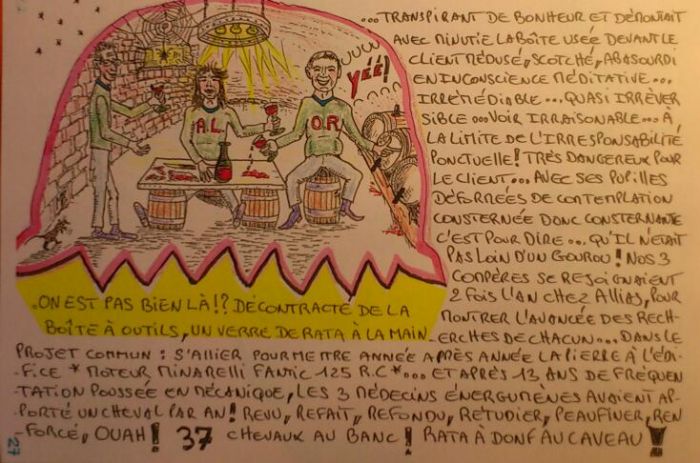 ...TRANSPIRANT DE BONHEUR ET DÉMONTAIT
AVEC MINUTIE LA BOÎTE USÉE DEVANT LE
CLIENT MÉDUSÉ, SCOTCHÉ, ABASOURDI
EN INCONSCIENCE MÉDITATIVE...
IRRÉMÉDIABLE... QUASI IRRÉVER
SIBLE... VOIR IRRAISONABLE... À
LA LIMITE DE L'IRRESPONSABILITÉ
PONCTUELLE! TRÈS DANGEREUX POUR
LE CLIENT... AVEC SES PUPILLES
DÉFORMÉES DE CONTEMPLATION
CONSTERNÉE DONC CONSTERNANTE
C'EST POUR DIRE... QU'IL N'ÉTAIT
PAS LOIN D'UN GOUROU! NOS 3
COMPÈRES SE REJOIGNAIENT
2 FOIS L'AN CHEZ ALLIAS, POUR
MONTRER L'AVANCÉE DES RECH-
ERCHES DE CHACUN... DANS LE
PROJET COMMUN : S'ALLIER POUR METTRE ANNÉE APRÈS ANNÉE LA PIERRE À L'ÉDI-
FICE * MOTEUR MINARELLI FANTIC 125 R.C *... ET APRÈS 13 ANS DE FRÉQUEN
TATION POUSSÉE EN MÉCANIQUE, LES 3 MÉDECINS ÉNERGUMÈNES AVAIENT AP-
PORTÉ UN CHEVAL PAR AN! REVU, REFAIT, REFONDU, RÉTUDIER, PEAUFINER, REN
FORCÉ, OUAH! 37 CHEVAUX AU BANC! RATA À DONF AU CAVEAU!
YÉÉ!
A.L.
O.R.
ON EST PAS BIEN LÀ!? DÉCONTRACTÉ DE LA
BOÎTE À OUTILS, UN VERRE DE RATA À LA MAIN
27